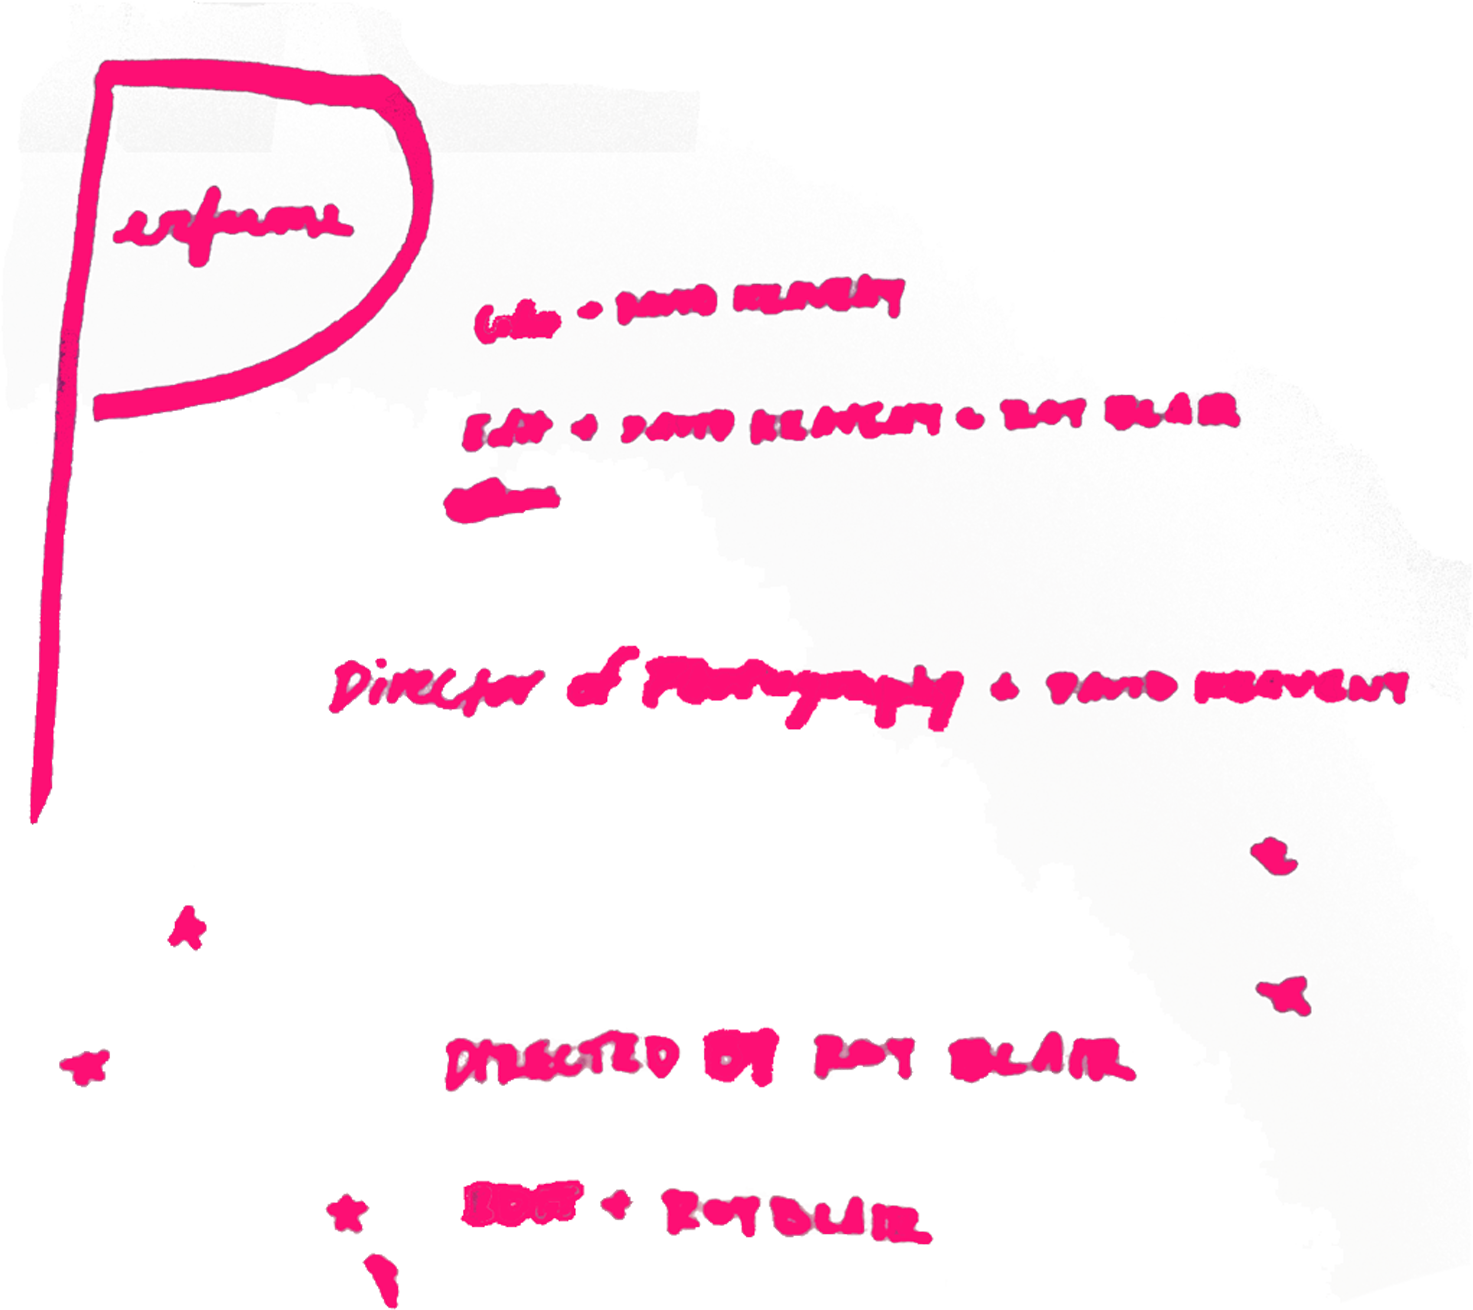 Perfume
Color - DAVID KEAVENY
Edit + DAVID KEAVENY + ROY BLAIR
Director of Photography + DAVID KEAVENY
DIRECTED BY ROY BLAIR
EDIT + ROY BLAIR